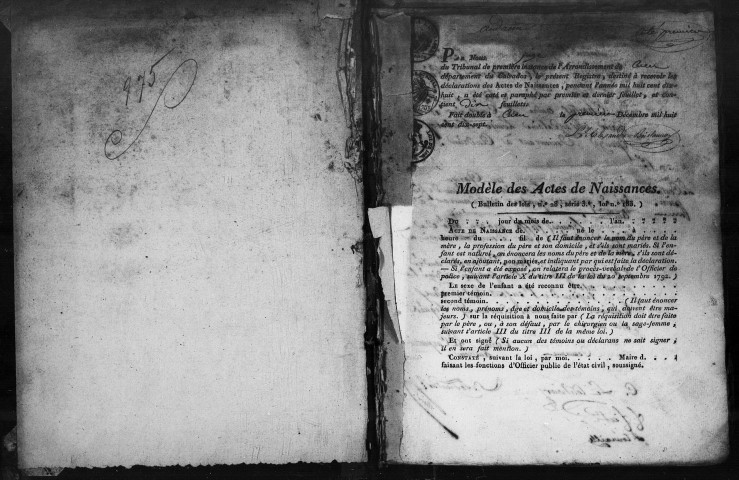 975
Par Nous
du Tribunal de première instance de l'Arrondissement de Caen
département du Calvados, le présent Registre, destiné à recevoir les
déclarations des Actes de Naissances, pendant l'année mil huit cent dix-
huit, a été coté et paraphé par premier et dernier feuillet, et con-
tient Dix feuillets.
Fait double à Caen le premier Décembre mil huit
cent dix-sept.
Modèle des Actes de Naissances.
( Bulletin des lois, n.° 28, série 3.e, loi n.° 185. )
Du . . . jour du mois de . . . . . l'an. . . . .
ACTE DE NAISSANCE de. . . . . . né le . . . . à
heure du. . . fil de ( Il faut énoncer le nom du père et de la
mère, la profession du père et son domicile, et s'ils sont mariés. Si l'en-
fant est naturel, on énoncera les noms du père et de la mère, s'ils sont dé-
clarés, en ajoutant, non mariés, et indiquant par qui est faite la déclaration.
— Si l'enfant a été exposé, on relatera le procès-verbal de l'Officier de
police, suivant l'article X du titre III de la loi du 20 septembre 1792. )
Le sexe de l'enfant a été reconnu être. . . . .
premier témoin. . . . . .
second témoin. . . . . . ( Il faut énoncer
les noms, prénoms, âge et domicile des témoins, qui doivent être ma-
jeurs. ) sur la réquisition à nous faite par ( La réquisition doit être faite
par le père, ou, à son défaut, par le chirurgien ou la sage-femme,
suivant l'article III du titre III de la même loi. )
Et ont signé ( Si aucun des témoins ou déclarans ne sait signer,
il en sera fait mention. )
CONSTATÉ, suivant la loi, par moi. . . . . Maire d. . . .
faisant les fonctions d'Officier public de l'état civil, soussigné.